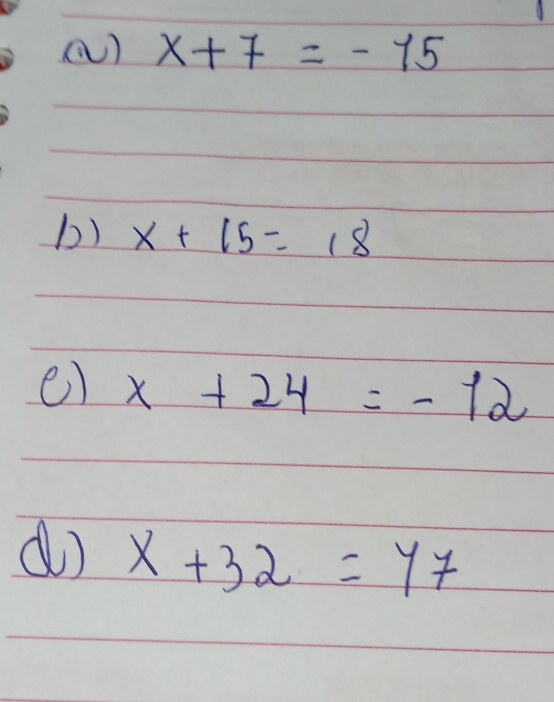 a) x + 7 = - 15
b) x + 15 = 18
c) x + 24 = - 12
d) x + 32 = 47